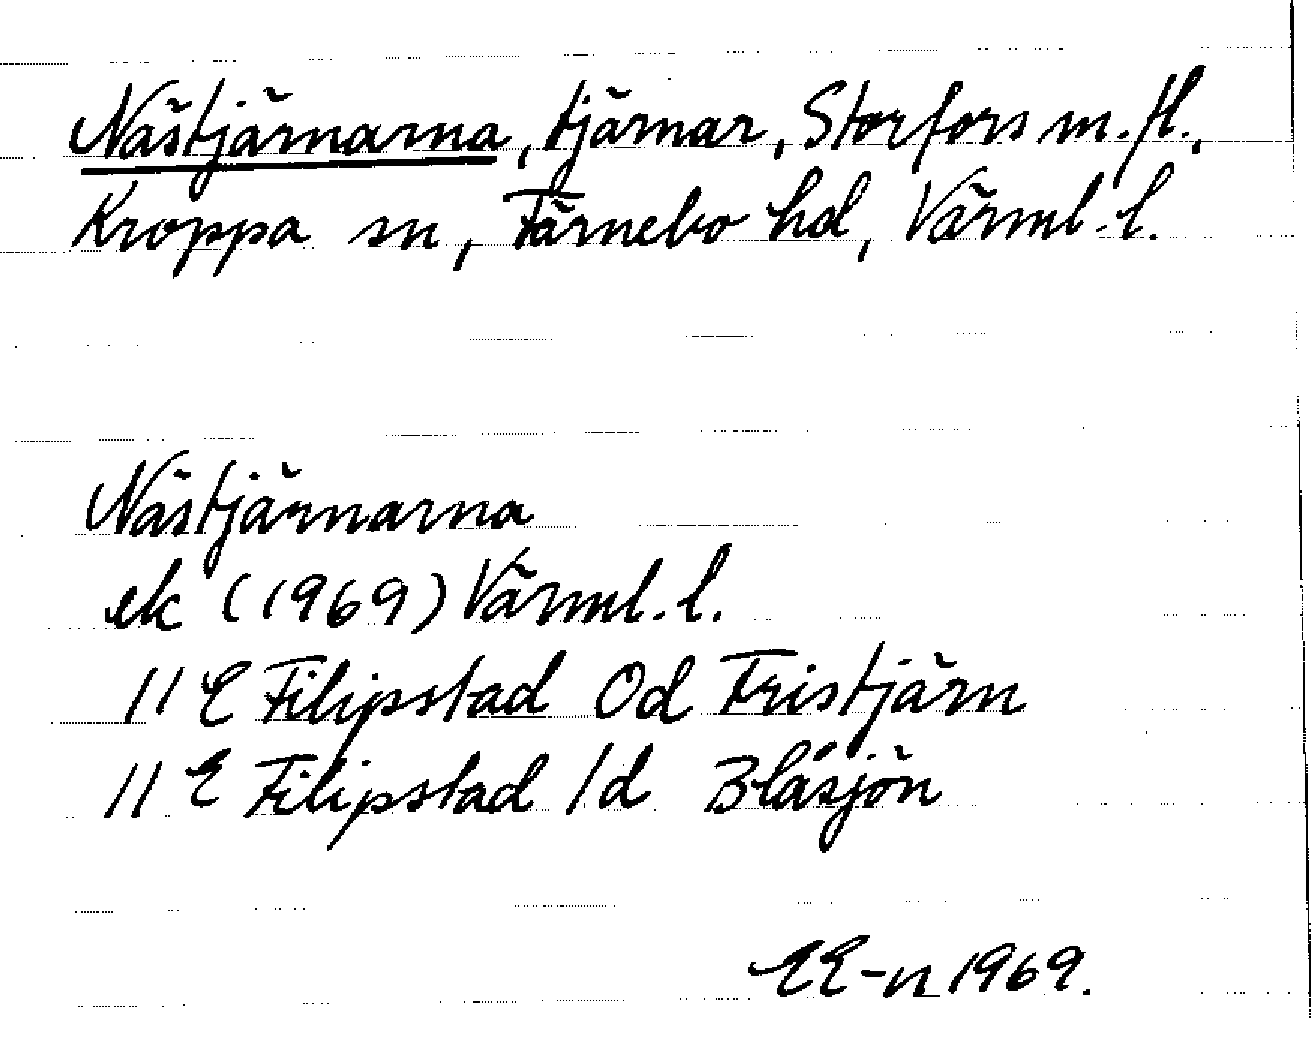 Nästjärnarna, tjärnar, Storfors m.fl.,
Kroppa sn, Färnebo hd, Värml. l.
Nästjärnarna
ek (1969) Värml. l.
11 E Filipstad 0d Fristjärn
11 E Filipstad 1d Blåsjön
EE-n 1969.